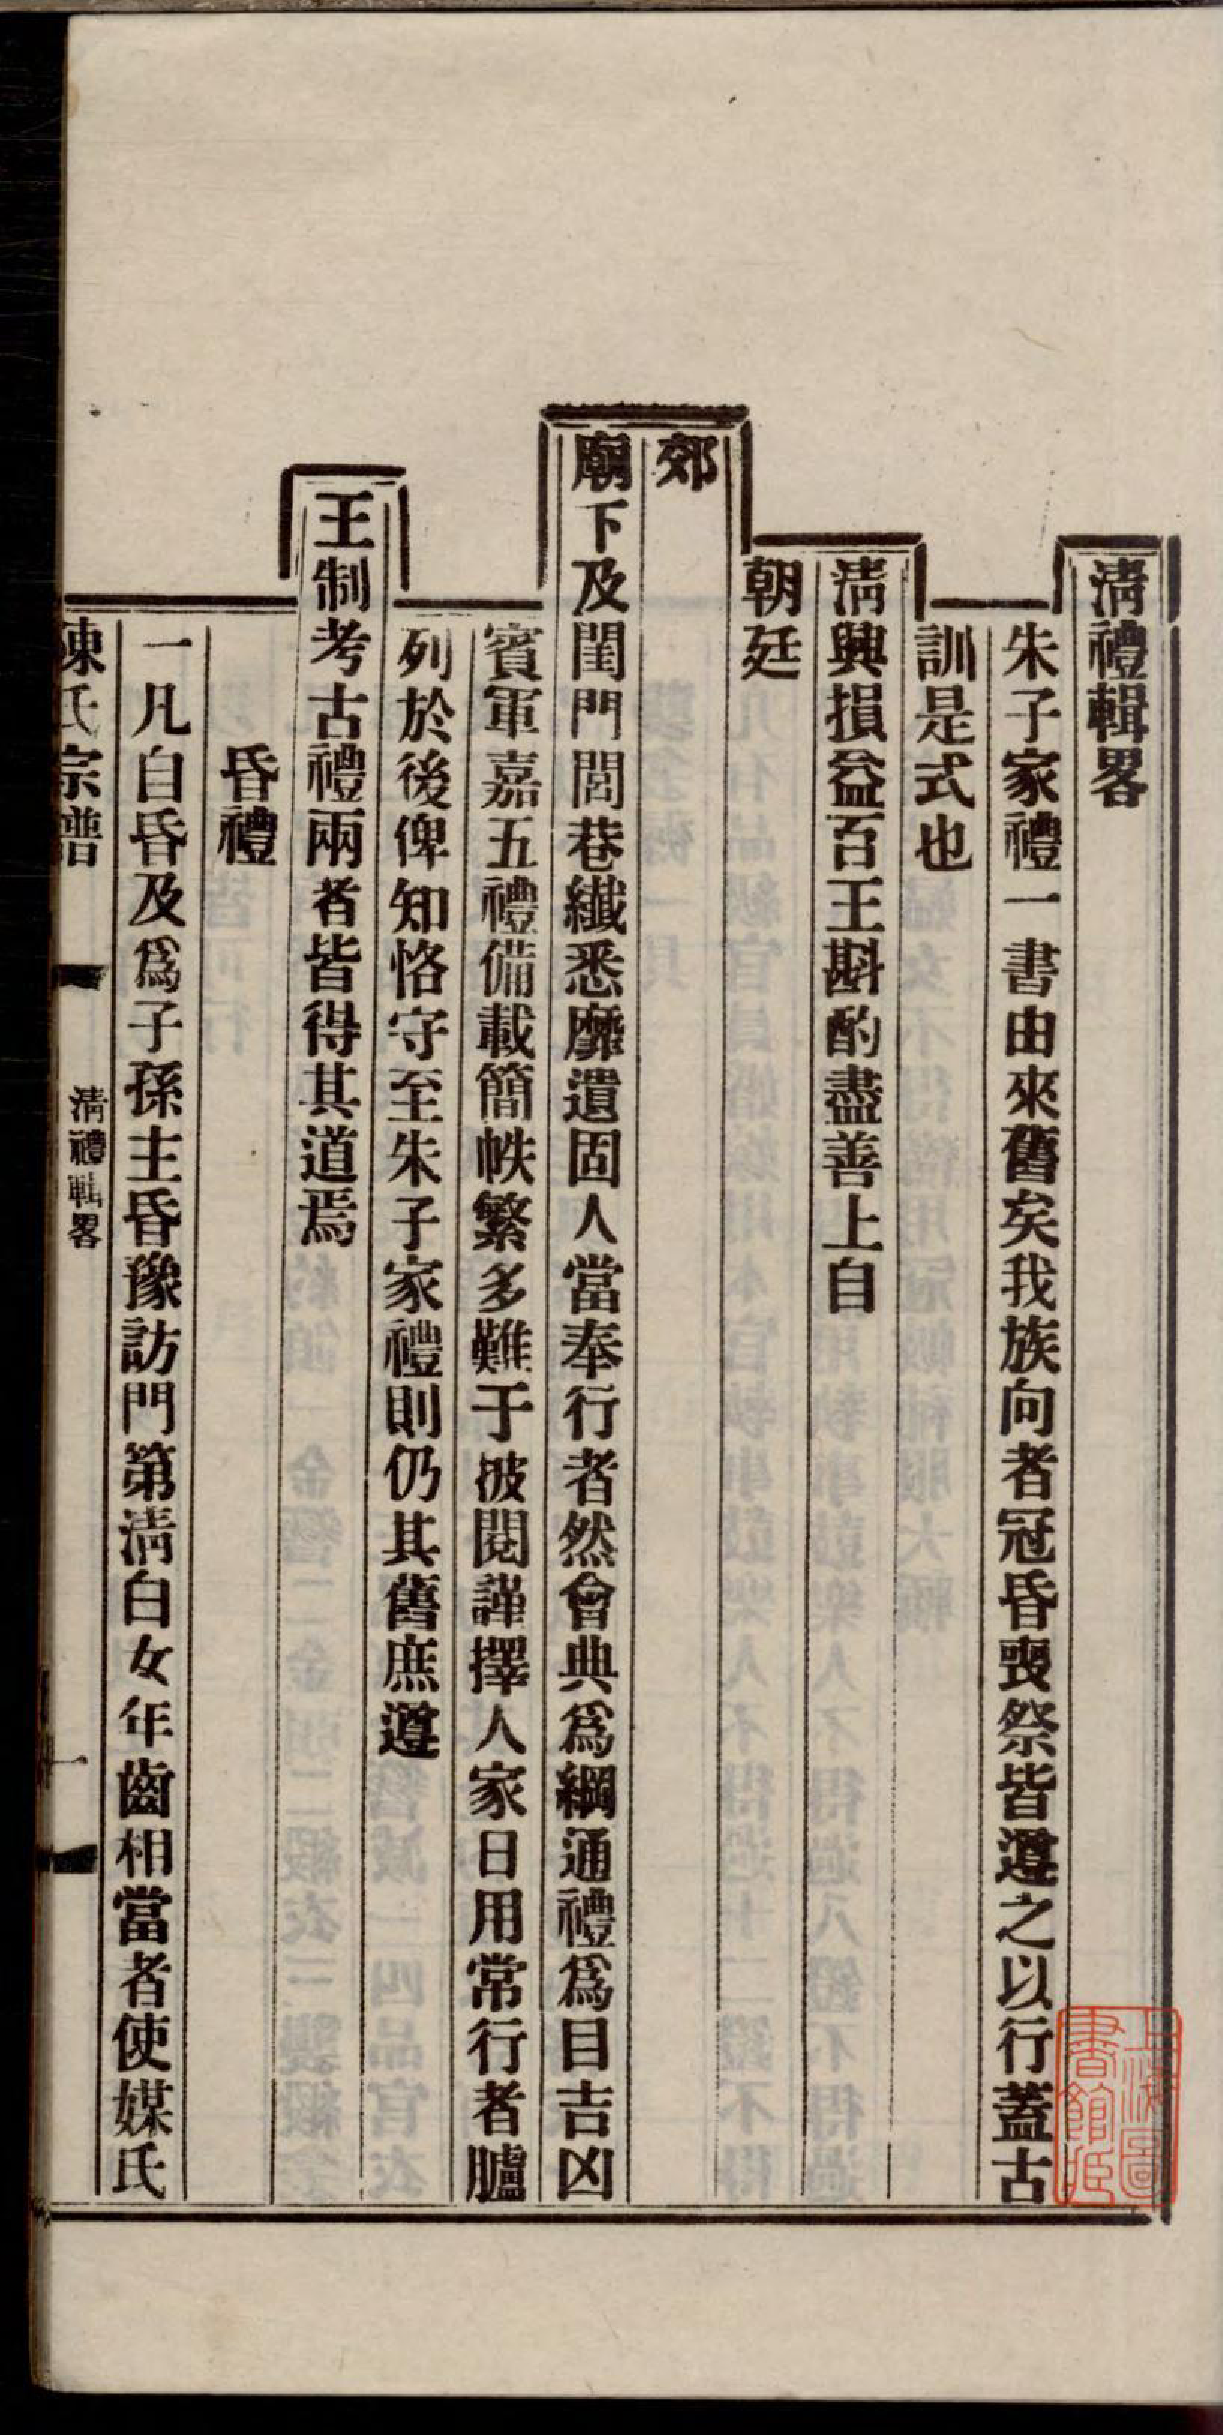 淸禮輯畧
朱子家禮一書由來舊矣我族向者冠昏喪祭皆遵之以行蓋古
訓是式也
淸興損益百王斟酌盡善上自
朝廷
郊
廟下及閨門閭巷纖悉靡遺固人當奉行者然會典爲綱通禮爲目吉凶
賓軍嘉五禮備載簡帙繁多難于披閱謹擇人家日用常行者臚
列於後俾知恪守至朱子家禮則仍其舊庶遵
王制考古禮兩者皆得其道焉
昏禮
一凡自昏及爲子孫主昏豫訪門第淸白女年齒相當者使媒氏
陳氏宗譜
淸禮輯畧
一
上海圖書館藏